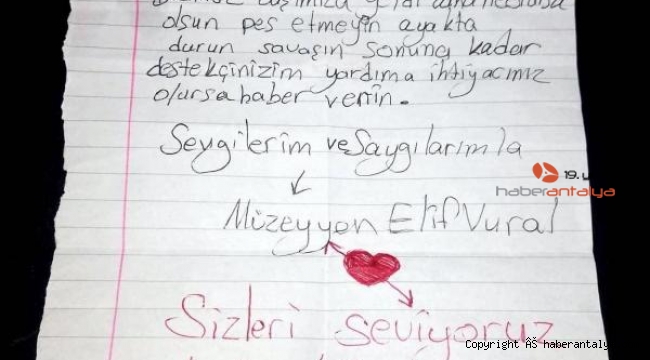 olsun pes etmeyin ayakta
durun savaşın sonuna kadar
destekçinizim yardıma ihtiyacınız
olursa haber verin.
Sevgilerim ve Saygılarımla
Müzeyyen Elif Vural
Sizleri seviyoruz
19.
haberantalya
Copyright Âš haberantaly